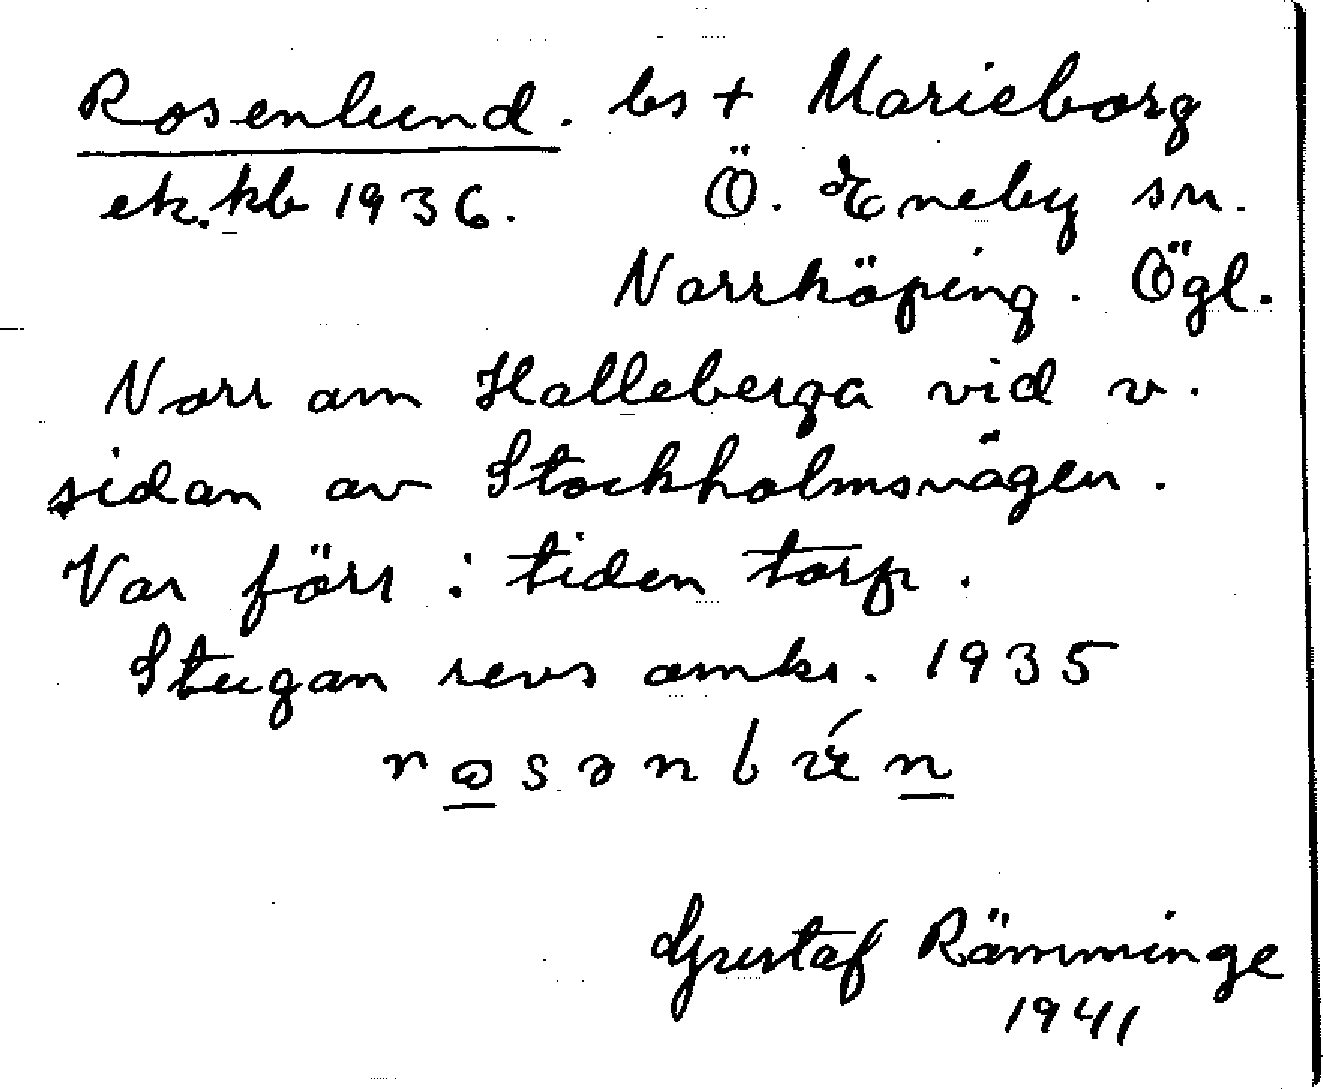 Rosenlund. ls + Marieborg
ek. kb 1936. Ö. Eneby sn.
Norrköping. Ögl.
Norr om Halleberga vid v.
sidan av Stockholmsvägen.
Var förr i tiden torp.
Stugan revs omkr. 1935
Gustaf Rämminge
1941